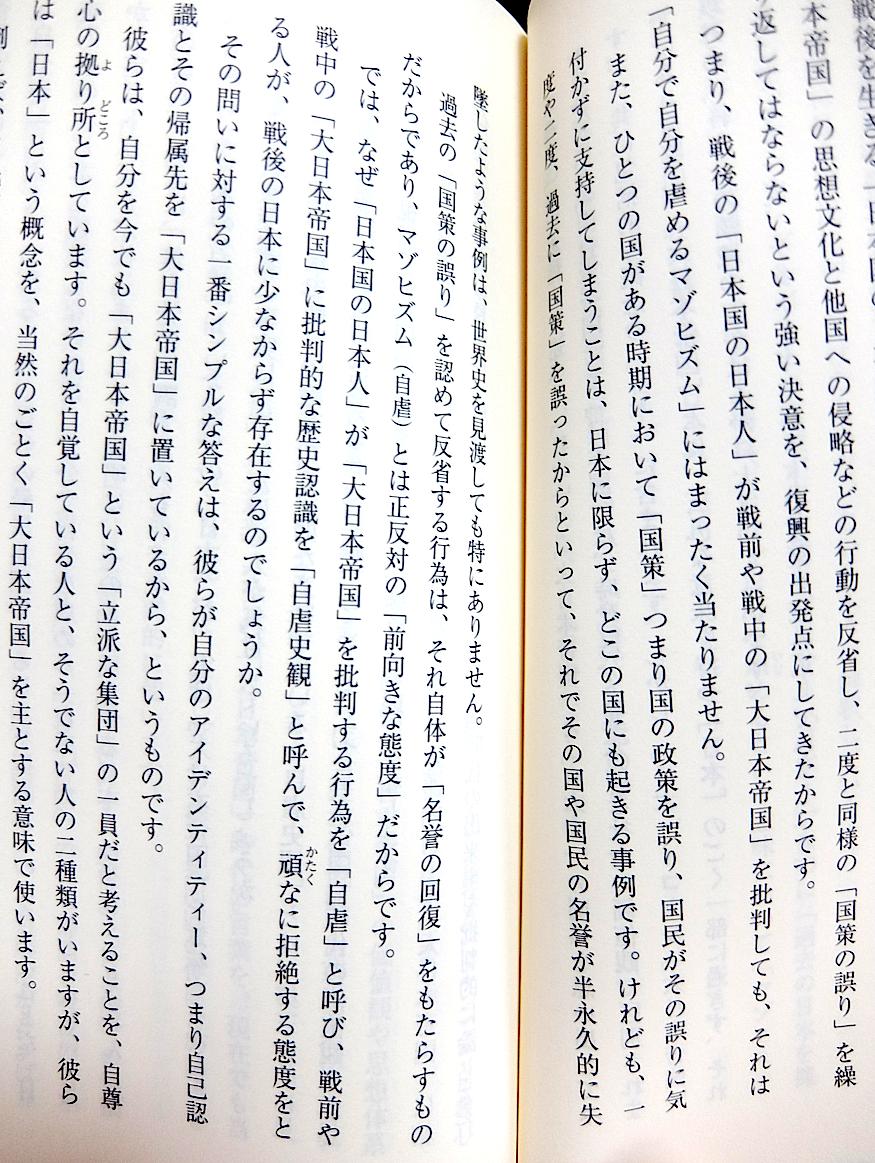 戦後を生きる「日本国の
本帝国」の思想文化と他国への侵略などの行動を反省し、二度と同様の「国策の誤り」を繰
返してはならないという強い決意を、復興の出発点にしてきたからです。
つまり、戦後の「日本国の日本人」が戦前や戦中の「大日本帝国」を批判しても、それは
「自分で自分を虐めるマゾヒズム」にはまったく当たりません。
また、ひとつの国がある時期において「国策」つまり国の政策を誤り、国民がその誤りに気
付かずに支持してしまうことは、日本に限らず、どこの国にも起きる事例です。けれども、一
度や二度、過去に「国策」を誤ったからといって、それでその国や国民の名誉が半永久的に失
墜したような事例は、世界史を見渡しても特にありません。
過去の「国策の誤り」を認めて反省する行為は、それ自体が「名誉の回復」をもたらすもの
だからであり、マゾヒズム（自虐）とは正反対の「前向きな態度」だからです。
では、なぜ「日本国の日本人」が「大日本帝国」を批判する行為を「自虐」と呼び、戦前や
戦中の「大日本帝国」に批判的な歴史認識を「自虐史観」と呼んで、頑なに拒絶する態度をと
る人が、戦後の日本に少なからず存在するのでしょうか。
その問いに対する一番シンプルな答えは、彼らが自分のアイデンティティー、つまり自己認
識とその帰属先を「大日本帝国」に置いているから、というものです。
彼らは、自分を今でも「大日本帝国」という「立派な集団」の一員だと考えることを、自尊
心の拠り所としています。それを自覚している人と、そうでない人の二種類がいますが、彼ら
は「日本」という概念を、当然のごとく「大日本帝国」を主とする意味で使います。